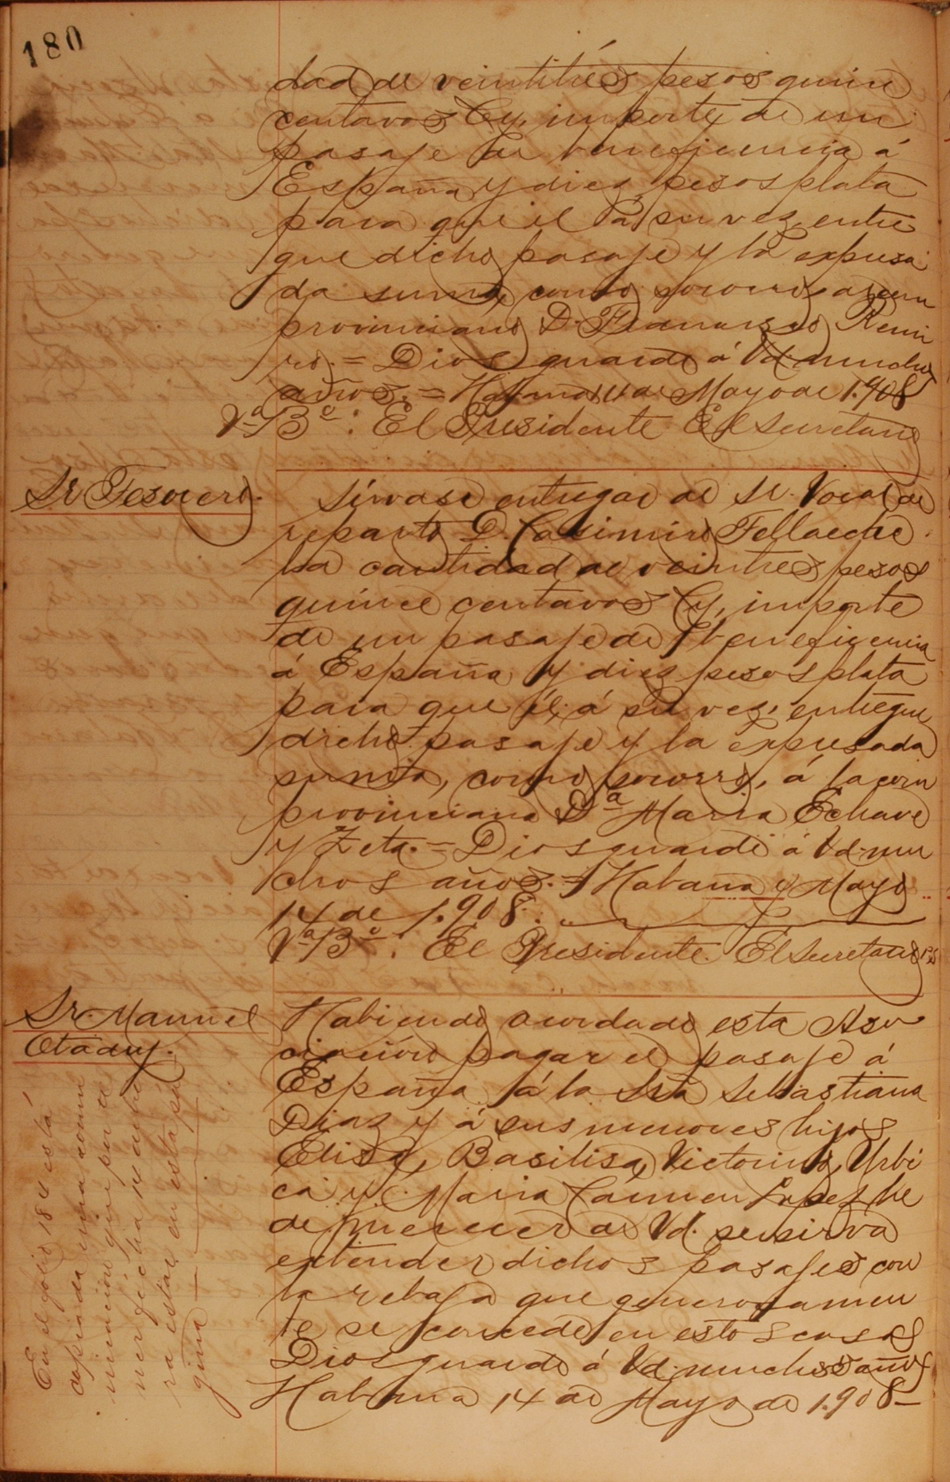 180
dad de veintitrés pesos quince
centavos Cy, importe de un
pasaje de beneficencia á
España y diez pesos plata
para que él á su vez, entre
gue dicho pasaje y la expresa
da suma, como socorro, al com
provinciano D. Francisco Remi
ro. = Dios guarde á Vd. muchos
años. = Habana 14 de Mayo de 1.908
Vº Bº: El Presidente El Secretario
Sr Tesorero.
Sírvase entregar al Sr. Vocal de
reparto D. Casimiro Tellaeche
la cantidad de veintres pesos
quince centavos Cy, importe
de un pasaje de beneficencia
á España y diez pesos plata
para que él á su vez, entregue
dicho pasaje y la expresada
suma, como socorro, á la com
provinciana Dª Maria Echave
y Zeta. = Dios guarde á Vd. mu
chos años. = Habana y Mayo
14 de 1.908.
Vº Bº: El Presidente. El Secretario
Sr. Manuel
Otaduy.
Habiendo acordado esta Aso
ciación pagar el pasaje á
España á la Sra Sebastiana
Diaz y á sus menores hijos
Elisa, Basilisa, Victorino, Urbi
ca y Maria Carmen Lopez, he
de merecer de Vd. se sirva
extender dichos pasajes con
la rebaja que generosamen
te se concede en estos casos
Dios guarde á Vd. muchos años
Habana 14 de Mayo de 1.908-
En el folio 184 está
copiada una comu
nicación que por te
ner fecha 14 debie
ra estar en esta pá
gina